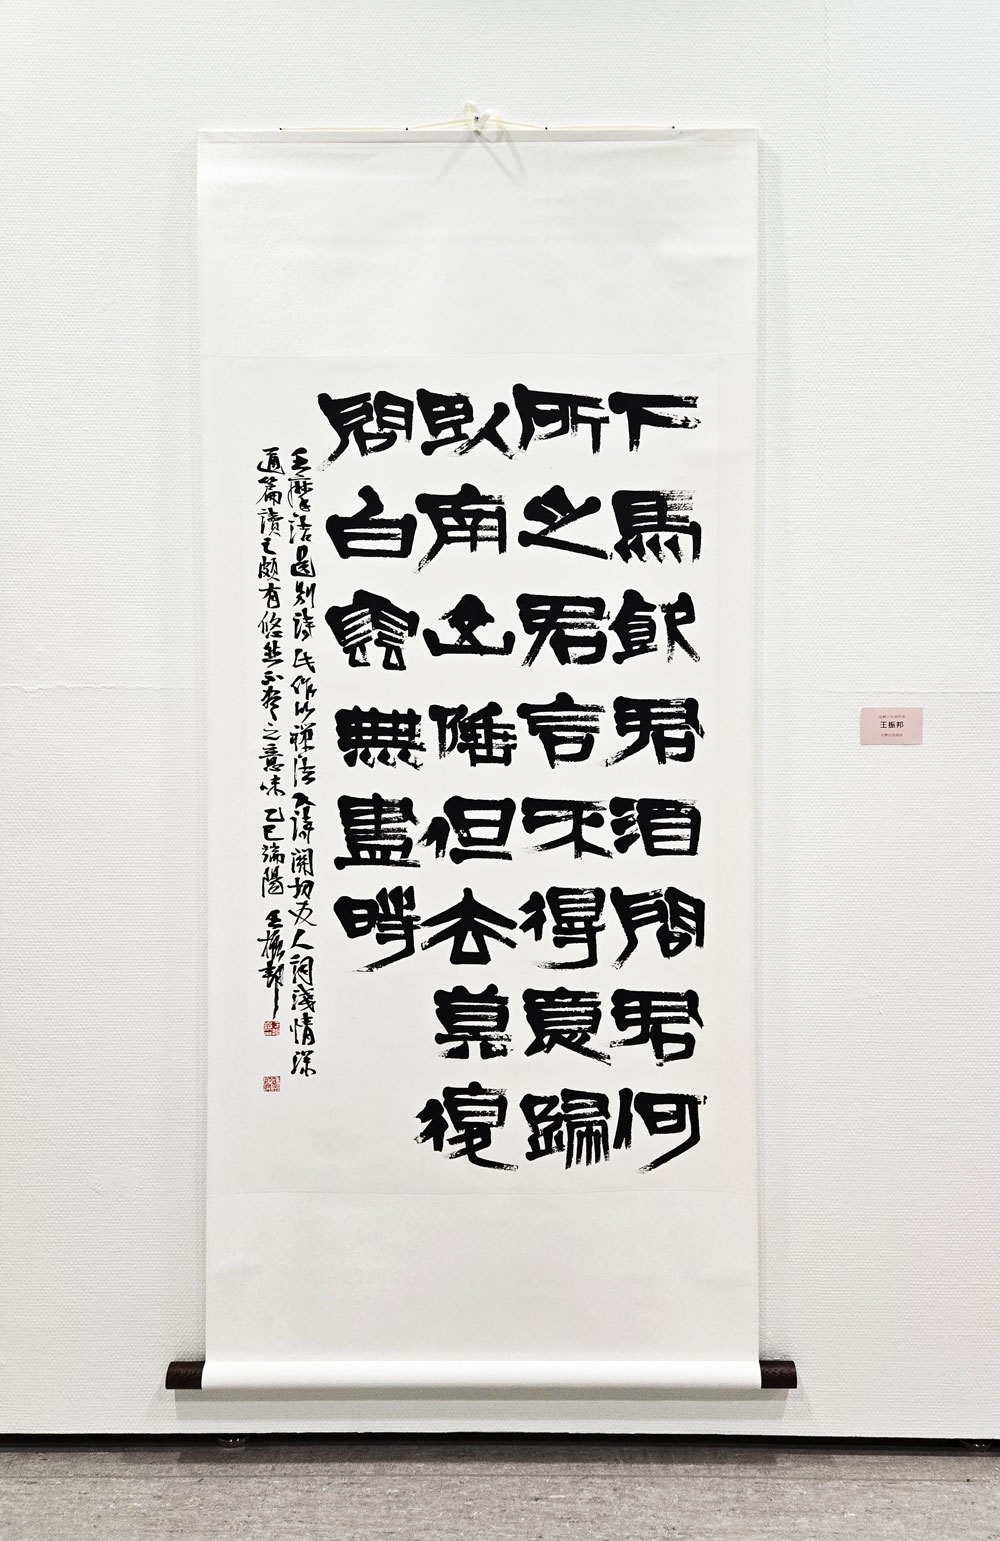 下馬飲君酒問君何
所之君言不得意歸
臥南山陲但去莫復
問白雲無盡時
王摩詰送別詩氏作以禪法入詩關切友人詞淺情深
通篇讀之頗有悠然不盡之意味乙巳端陽王振邦
王振邦